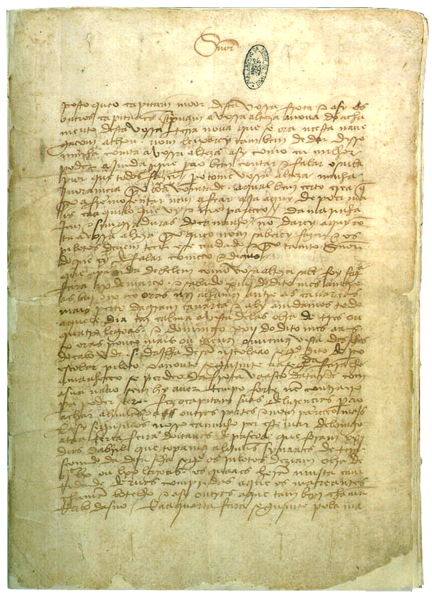 Snõr
posto queo capitam moor desta vossa frota e asy os
outros capitaães screpuam a vossa alteza anoua do acha
mento desta vossa terra noua que se ora neesta naue
gaçam achou. nom leixarey tambem de dar disso
minha comta a vossa alteza asy como eu milhor
poder ajmda que perao bem contar e falar osaiba
pior que todos fazer. pero tome vossa alteza minha
jnoramçia por boa vomtade. aqual bem çerto crea q̃
por afremosentar nem afear aja aquy de poer ma
is caaquilo que vy e me pareçeo. / da marinha
jem e simgraduras do caminho nõ darey aquy cõ
ta a vossa alteza por queo nom saberey fazer e os
pilotos deuem teer ese cuidado e por tanto Snõr
do que ey de falar começo e diguo.
que a partida de belem como vossa alteza sabe foy
feira ix de março. e sabado xiiij do dito mes amtre
as biij e ix oras nos achamos antre as canareas
mais perto da gram canarea e aly amdamos todo
aquele dia em calma avista delas obra de tres ou
quatro legoas. e domingo xxij do dito mes aas
x oras pouco mais ou menos ouuemos vista das jlhas
do cabo verde .s. da jlha de sã njcolaao segº dito de pero
escolar piloto. e anoute segujmte aa segda feira lhe
amanheçeo se perdeo da frota vaasco datayde com
a sua naao sem hy auer tempo forte nem contrairo
pera poder seer. fez o capitam suas deligençias perao
achar ahuũas e aoutras partes e nom pareçeo majs
E asy segujmos nosso caminho per este mar delomgo
ataa terça feira doitauas de pascoa que foram xxj
dias dabril que topamos alguũs synaaes de tera
seemdo da dita jlha segº os pilotos deziam obra de
bjc lx ou lxx legoas. os quaaes heram mujta cam
tidade deruas compridas aque os mareantes
chamã botelho e asy outras aque tambem chamã
rrabo dasno. E aa quarta feira segujmte pola ma